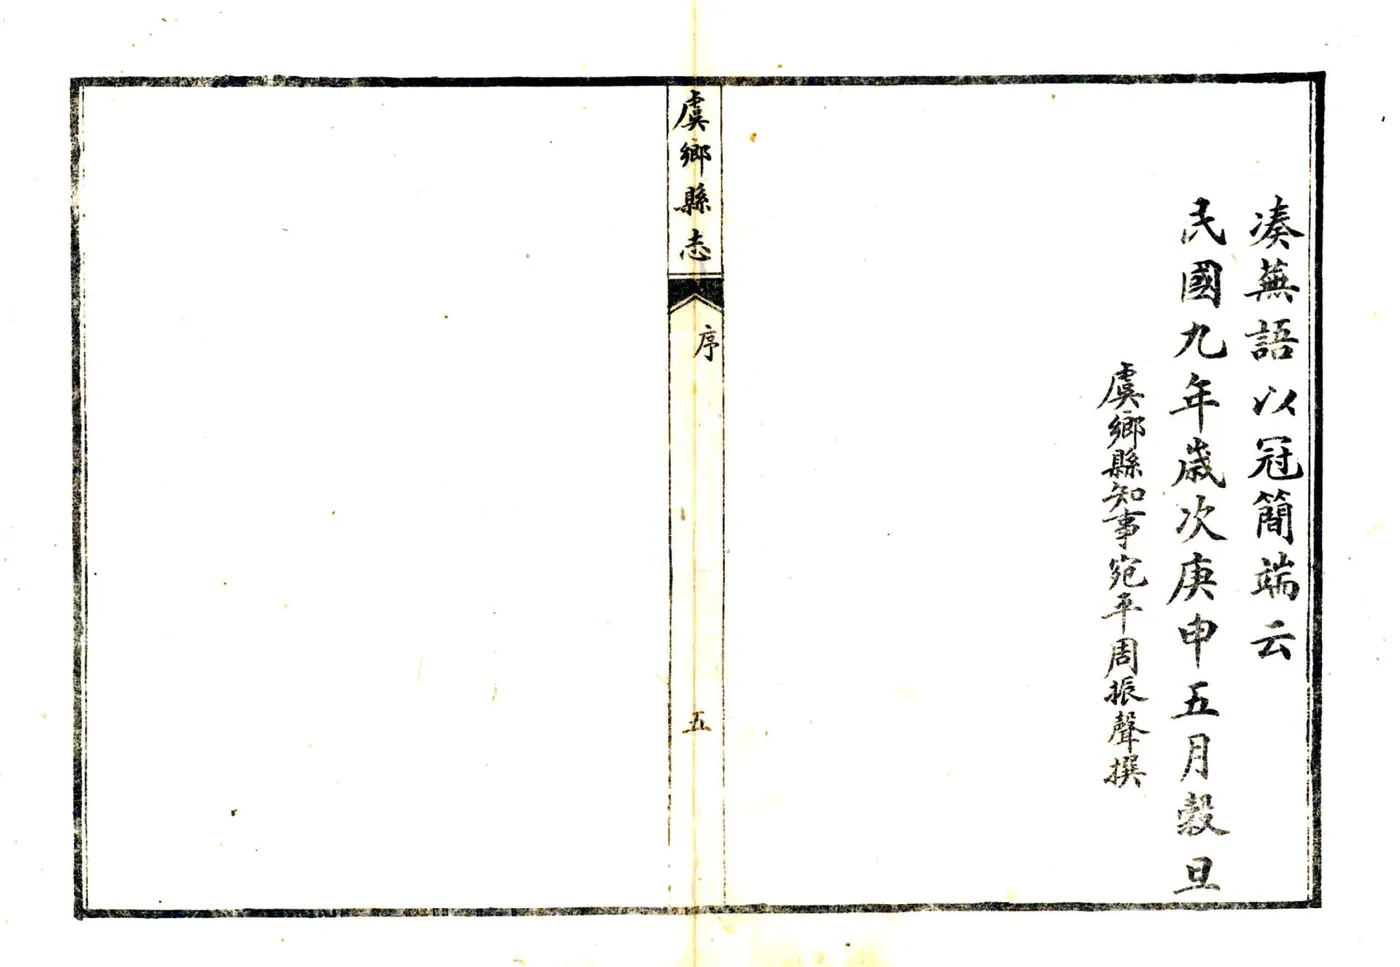 凑蕪語以冠簡端云
民國九年歲次庚申五月穀旦
虞鄉縣知事宛平周振聲撰
虞鄉縣志
序
五